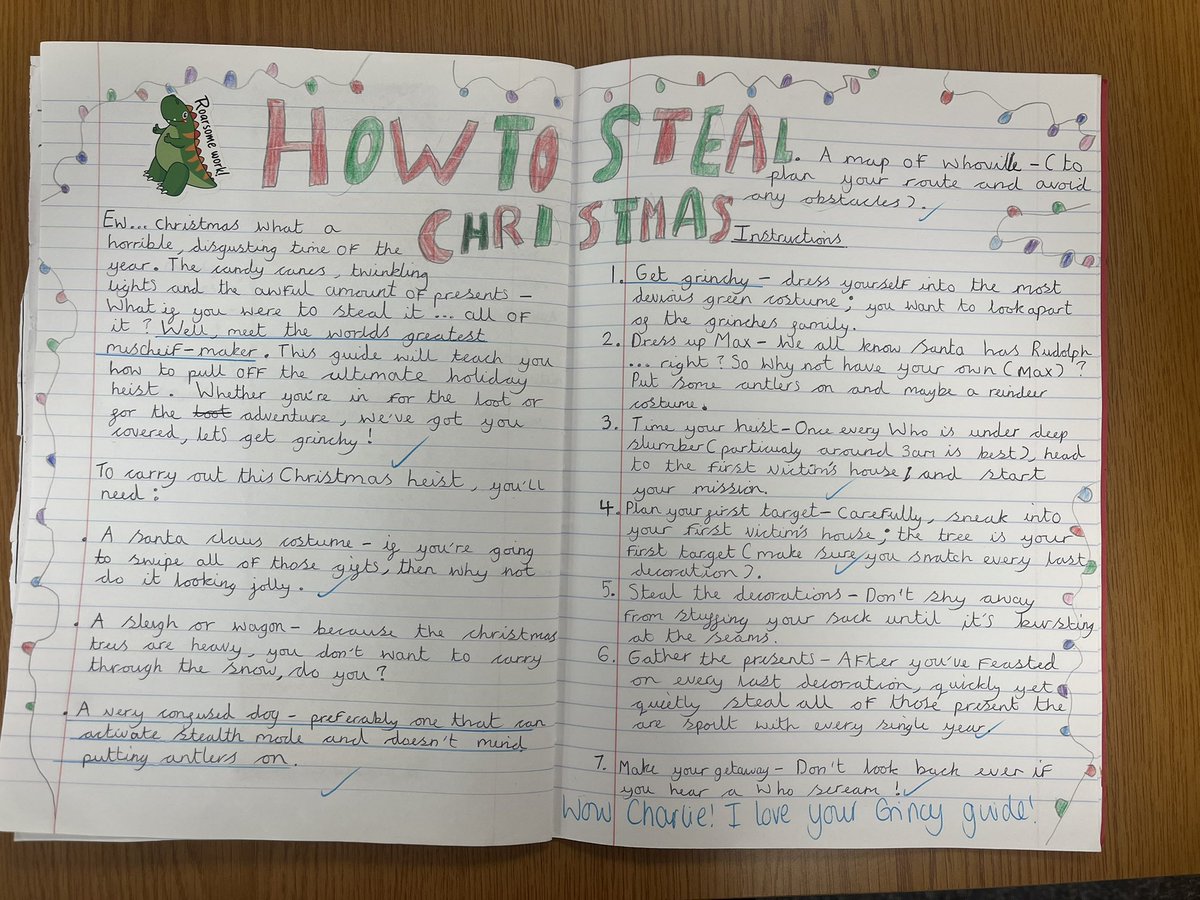 Roarsome work!
HOW TO STEAL
CHRISTMAS
Ew... Christmas what a
horrible, disgusting time of the
year. The candy canes, twinkling
lights and the awful amount of presents -
What if you were to steal it ... all of
it ? Well, meet the worlds greatest
mischeif-maker. This guide will teach you
how to pull off the ultimate holiday
heist. Whether you're in for the loot or
for the loot adventure, we've got you
covered, let's get grinchy !
To carry out this Christmas heist, you'll
need :
• A santa claus costume - if you're going
to swipe all of those gifts, then why not
do it looking jolly.
• A sleigh or wagon - because the christmas
trees are heavy, you don't want to carry
through the snow, do you ?
• A very confused dog - preferably one that can
activate stealth mode and doesn't mind
putting antlers on.
• A map of whoville - ( to
plan your route and avoid
any obstacles ).
Instructions
1. Get grinchy - dress yourself into the most
devious green costume ; you want to look apart
of the grinches family.
2. Dress up Max - We all know Santa has Rudolph
... right ? So why not have your own (Max) ?
Put some antlers on and maybe a reindeer
costume.
3. Time your heist - Once every Who is under deep
slumber ( particuly around 3am is best ), head
to the first victim's house, and start
your mission.
4. Plan your first target - Carefully, sneak into
your first victim's house ; the tree is your
first target ( make sure you snatch every last
decoration ).
5. Steal the decorations - Don't shy away
from stuffing your sack until it's bursting
at the seams.
6. Gather the presents - After you've feasted
on every last decoration, quickly yet
quietly steal all of those present the
are spoilt with every single year.
7. Make your getaway - Don't look back ever if
you hear a Who scream !
Wow Charlie! I love your Grincy guide!